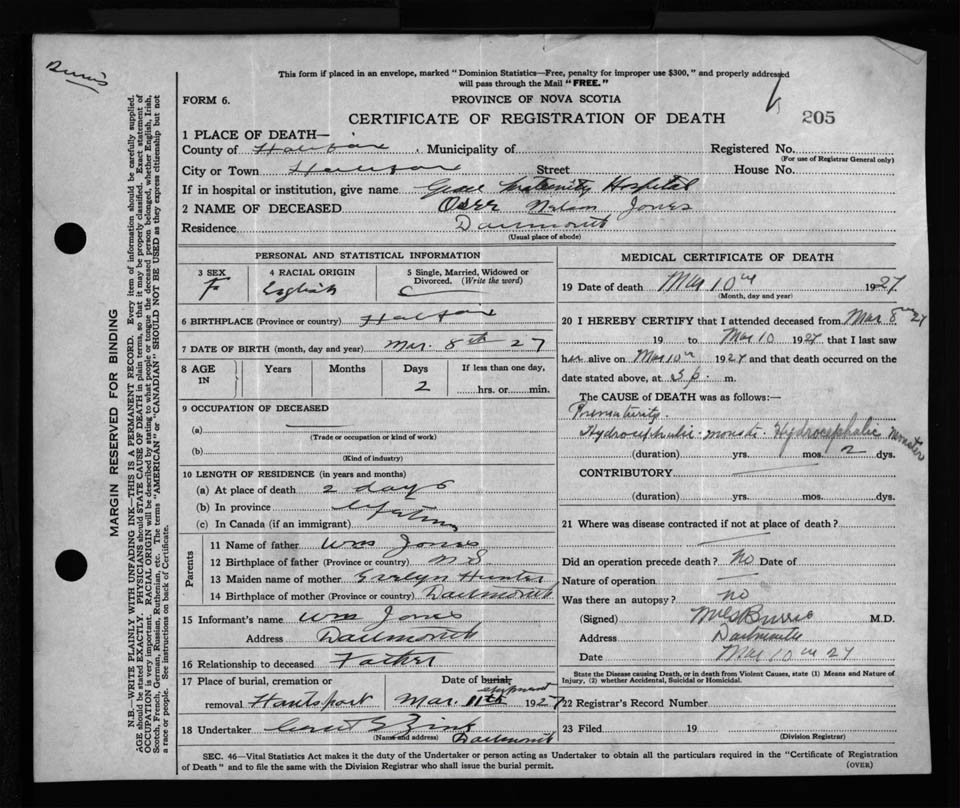 This form if placed in an envelope, marked "Dominion Statistics—Free, penalty for improper use $300," and properly addressed
will pass through the Mail "FREE."
FORM 6.
PROVINCE OF NOVA SCOTIA
CERTIFICATE OF REGISTRATION OF DEATH
205
1 PLACE OF DEATH—
County of Halifax Municipality of Registered No.
(For use of Registrar General only)
City or Town Halifax Street House No.
If in hospital or institution, give name Grace Maternity Hospital
2 NAME OF DECEASED Jones
Residence Dartmouth
(Usual place of abode)
PERSONAL AND STATISTICAL INFORMATION
3 SEX 4 RACIAL ORIGIN 5 Single, Married, Widowed or
Divorced. (Write the word)
F English
6 BIRTHPLACE (Province or country) Halifax
7 DATE OF BIRTH (month, day and year) Mar. 8th 27
8 AGE IN Years Months Days If less than one day,
2 hrs. or min.
9 OCCUPATION OF DECEASED
(a)
(Trade or occupation or kind of work)
(b)
(Kind of industry)
10 LENGTH OF RESIDENCE (in years and months)
(a) At place of death 2 days
(b) In province lifetime
(c) In Canada (if an immigrant)
Parents
11 Name of father Wm Jones
12 Birthplace of father (Province or country) N S
13 Maiden name of mother Evelyn Hunter
14 Birthplace of mother (Province or country) Dartmouth
15 Informant's name Wm Jones
Address Dartmouth
16 Relationship to deceased Father
17 Place of burial, cremation or Date of burial,
removal Hantsport Mar. 11th 1927
18 Undertaker Zink
(Name and address) Dartmouth
MEDICAL CERTIFICATE OF DEATH
19 Date of death Mar 10th 1927
(Month, day and year)
20 I HEREBY CERTIFY that I attended deceased from Mar 8th 27
19 to Mar 10 1927 that I last saw
her alive on Mar 10th 1927 and that death occurred on the
date stated above, at 3 p. m.
The CAUSE OF DEATH was as follows:—
Prematurity.
Hydrocephalic monster. Hydrocephalic Monster
(duration) yrs. mos. 2 dys.
CONTRIBUTORY
(duration) yrs. mos. dys.
21 Where was disease contracted if not at place of death?
Did an operation precede death? No Date of
Nature of operation
Was there an autopsy? No
(Signed) M.D.
Address Dartmouth
Date Mar 10th 27
State the Disease causing Death, or in death from Violent Causes, state (1) Means and Nature of
Injury, (2) whether Accidental, Suicidal or Homicidal.
22 Registrar's Record Number
23 Filed 19
(Division Registrar)
SEC. 46—Vital Statistics Act makes it the duty of the Undertaker or person acting as Undertaker to obtain all the particulars required in the "Certificate of Registration
of Death" and to file the same with the Division Registrar who shall issue the burial permit.
(OVER)
MARGIN RESERVED FOR BINDING
N.B.—WRITE PLAINLY WITH UNFADING INK—THIS IS A PERMANENT RECORD. Every item of information should be carefully supplied.
AGE should be stated EXACTLY. PHYSICIANS should STATE CAUSE OF DEATH in plain terms, so that it may be properly classified. Exact statement of
OCCUPATION is very important. RACIAL ORIGIN will be described by stating to what people or tongue the deceased person belonged, whether English, Irish,
Scotch, French, German, Russian, Ruthenian, etc. The terms "AMERICAN" or "CANADIAN" SHOULD NOT BE USED as they express citizenship but not
a race or people. See instructions on back of Certificate.